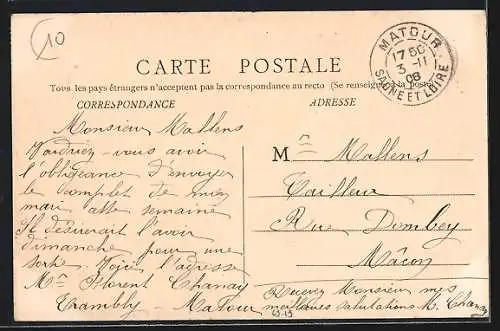 10
MATOUR
17 50
3 -11
08
SAONE ET LOIRE
CARTE POSTALE
Tous les pays étrangers n'acceptent pas la correspondance au recto (Se renseigner à la poste)
CORRESPONDANCE
ADRESSE
Monsieur Mallens
Voudriez-vous avoir
l'obligeance d'envoyer
le complet de mon
mari cette semaine
Il désirerait l'avoir
dimanche pour une
sortie. Voici l'adresse
Mme Florent Chanay
Trambly - Matour
M r Mallens
Tailleur
Rue Dombey
Mâcon
Recevez Monsieur mes
meilleures salutations M. Chanay